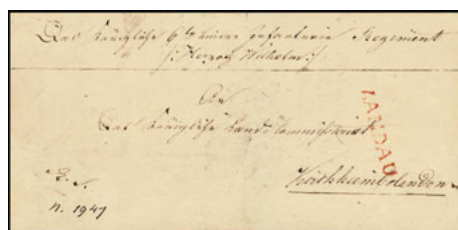 Das Königliche 6te Linien Infanterie Regement
/: Herzog Wilhelm :/
An
Das Königliche Landcommissariat
LANDAU
Kirchheimbolanden
n. 1947